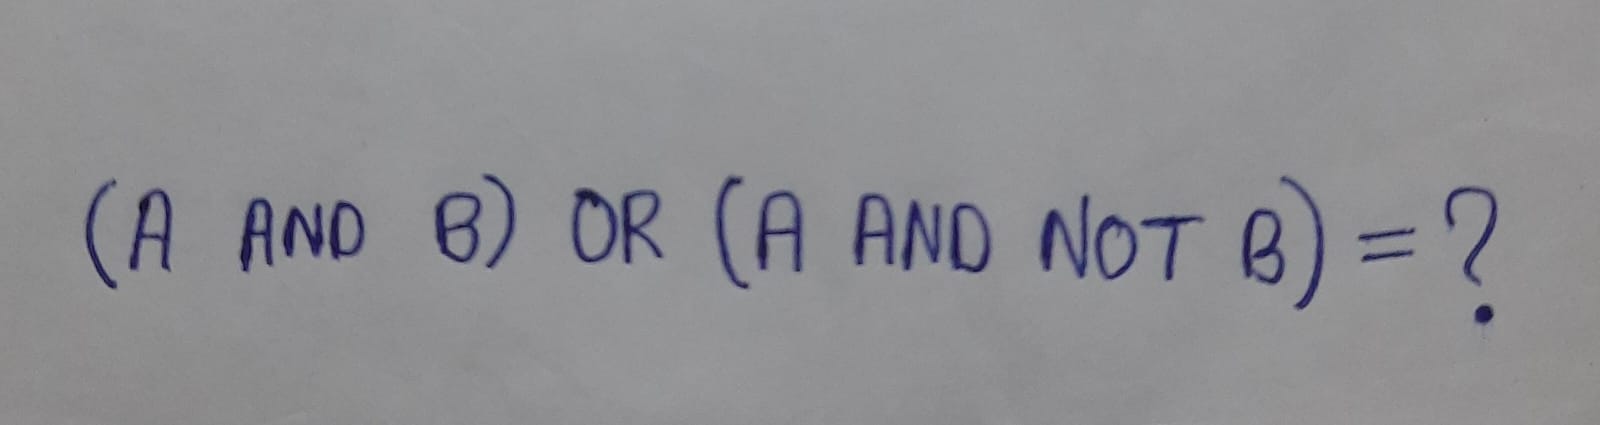 (A AND B) OR (A AND NOT B) = ?